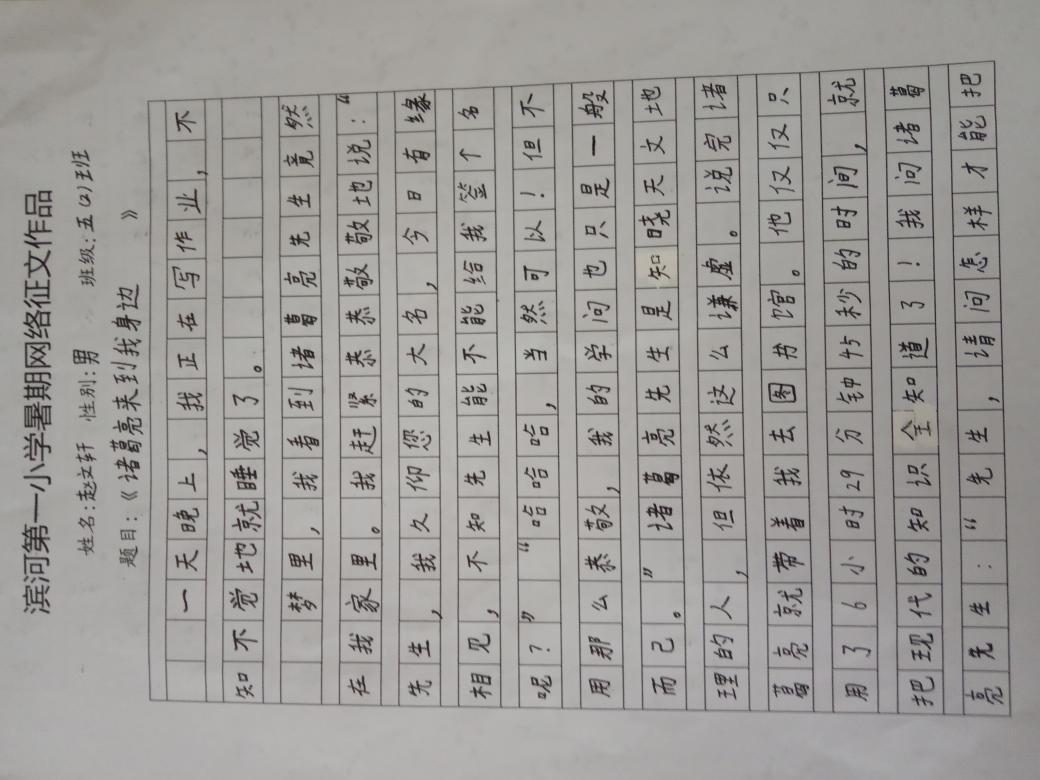 滨河第一小学暑期网络征文作品
姓名:赵文轩 性别:男 班级:五(2)班
题目:《诸葛亮来到我身边》
一天晚上,我正在写作业,不
知不觉地就睡觉了。
梦里,我看到诸葛亮先生竟然
在我家里。我赶紧恭恭敬敬地说:“
先生,我久仰您的大名,今日有缘
相见,不知先生能不能给我签个名
呢?”“哈哈哈哈,当然可以!但不
用那么恭敬,我的学问也只是一般
而已。”诸葛亮先生是知晓天文地
理的人,但依然这么谦虚。说完诸
葛亮就带着我去图书馆。他仅仅只
用了6小时29分钟45秒的时间,就
把现代的知识全知道了!我问诸葛
亮先生:“先生,请问怎样才能把